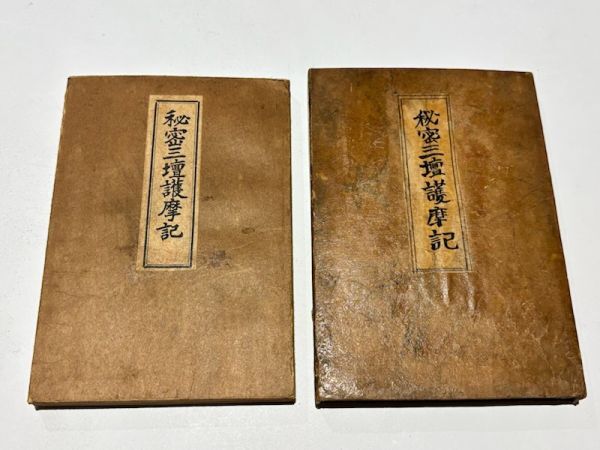 秘密三壇護摩記
秘密三壇護摩記